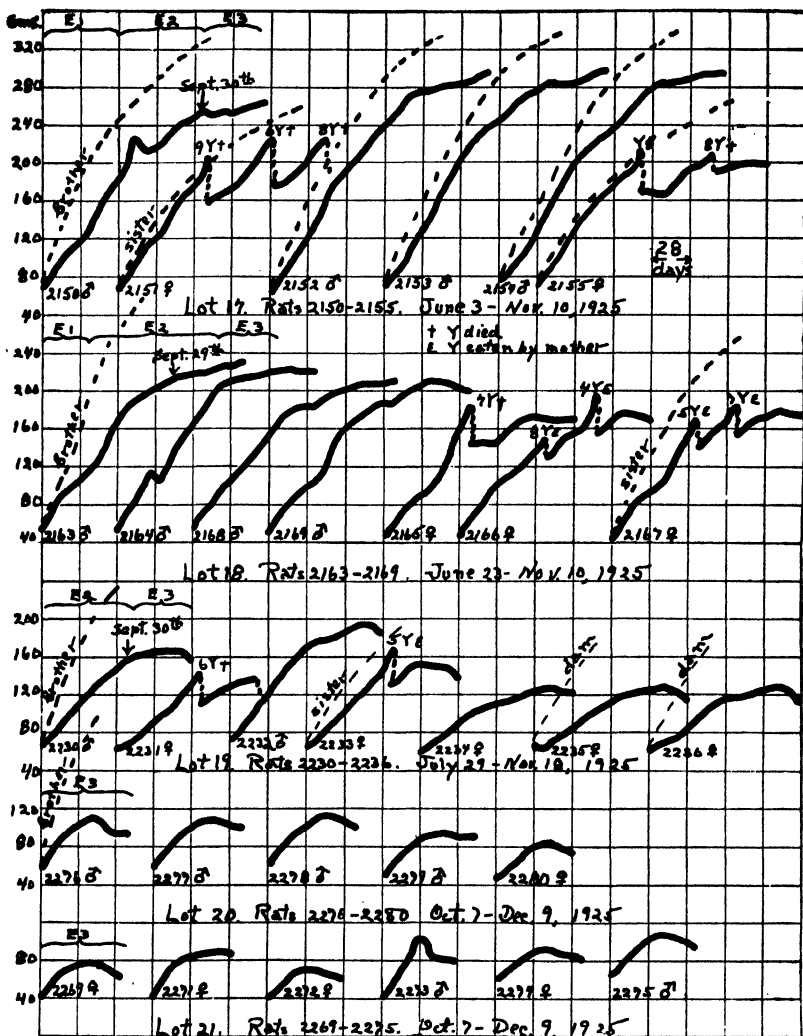 Gms. E1 E2 E3
320
280
240
200
160
120
80
40
Sept. 30th
Brother
Sister
9Y†
6Y†
8Y†
YE
8Y†
28 days
2150♂ 2151♀ 2152♂ 2153♂ 2154♂ 2155♀
Lot 17. Rats 2150-2155. June 3 - Nov. 10, 1925
† Y died
E Y eaten by mother
E1 E2 E3
240
200
160
120
80
40
Sept. 29th
Brother
4Y†
8YE
4YE
Sister
5YE
7YE
2163♂ 2164♂ 2168♂ 2169♂ 2165♀ 2166♀ 2167♀
Lot 18. Rats 2163-2169. June 23 - Nov. 10, 1925
E2 E3
200
160
120
80
40
Sept. 30th
Brother
6Y†
Sister
5YE
dam
dam
2230♂ 2231♀ 2232♂ 2233♀ 2234♀ 2235♀ 2236♀
Lot 19. Rats 2230-2236. July 29 - Nov. 18, 1925
E3
120
80
40
Brother
2276♂ 2277♂ 2278♂ 2279♂ 2280♀
Lot 20. Rats 2276-2280 Oct. 7 - Dec. 9, 1925
E3
80
40
2269♀ 2271♀ 2272♀ 2273♂ 2274♀ 2275♂
Lot 21. Rats 2269-2275. Oct. 7 - Dec. 9, 1925